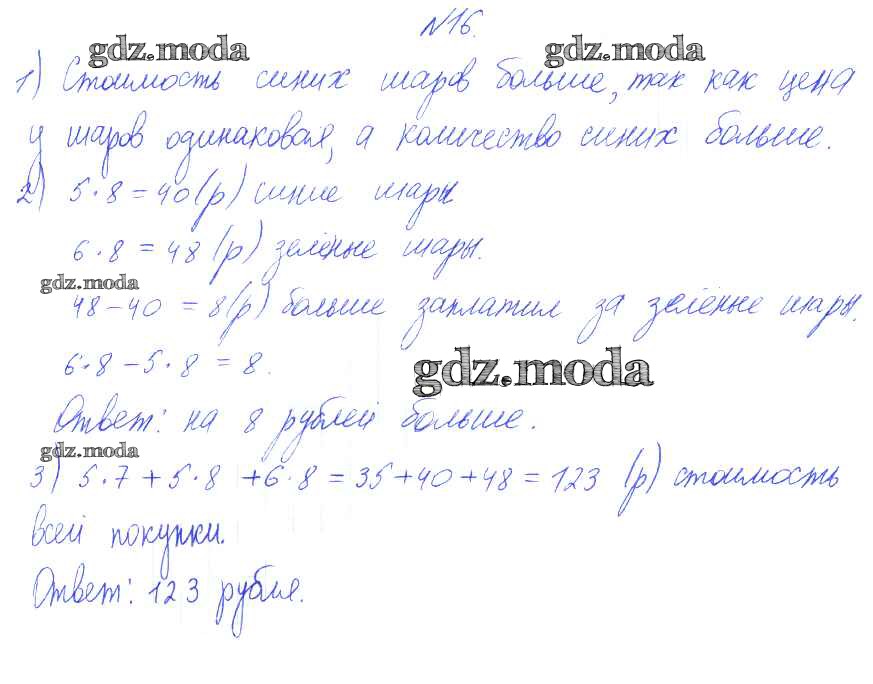 №16.
gdz.moda gdz.moda
1) Стоимость синих шаров больше, так как цена
у шаров одинаковая, а количество синих больше.
2) 5·8=40(р) синие шары
6·8=48(р) зелёные шары.
gdz.moda
48-40=8(р) больше заплатил за зелёные шары.
6·8-5·8=8.
gdz.moda
Ответ: на 8 рублей больше.
gdz.moda
3) 5·7+5·8+6·8=35+40+48=123 (р) стоимость
всей покупки.
Ответ: 123 рубля.